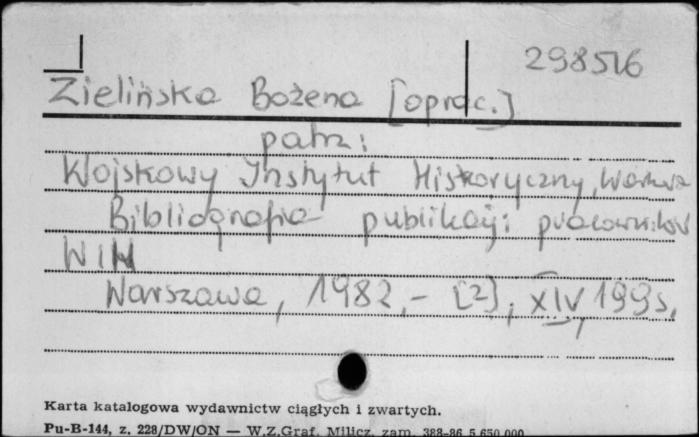 298516
Zielińska Bożena [oprac.]
patrz:
Wojskowy Instytut Historyczny, Warszawa
Bibliografia publikacji pracowników
WIH
Warszawa, 1982,- [2], XIV, 199 s.
Karta katalogowa wydawnictw ciągłych i zwartych.
Pu-B-144, z. 228/DW/ON — W.Z.Graf. Milicz, zam. 388-86 5.650.000